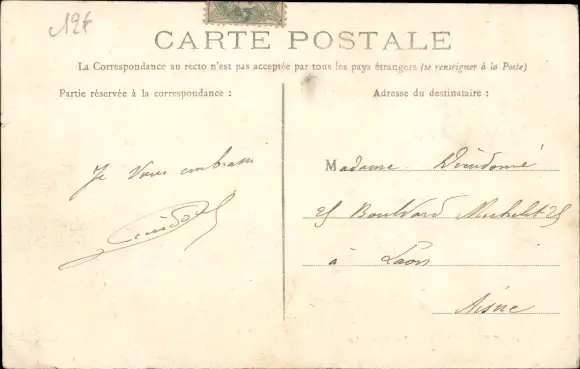 12f
CARTE POSTALE
La Correspondance au recto n'est pas acceptée par tous les pays étrangers (se renseigner à la Poste)
Partie réservée à la correspondance :
Adresse du destinataire :
Je vous embrasse
Madame Dieudonné
25 Boulvard Michelet 25
à Laon
Aisne